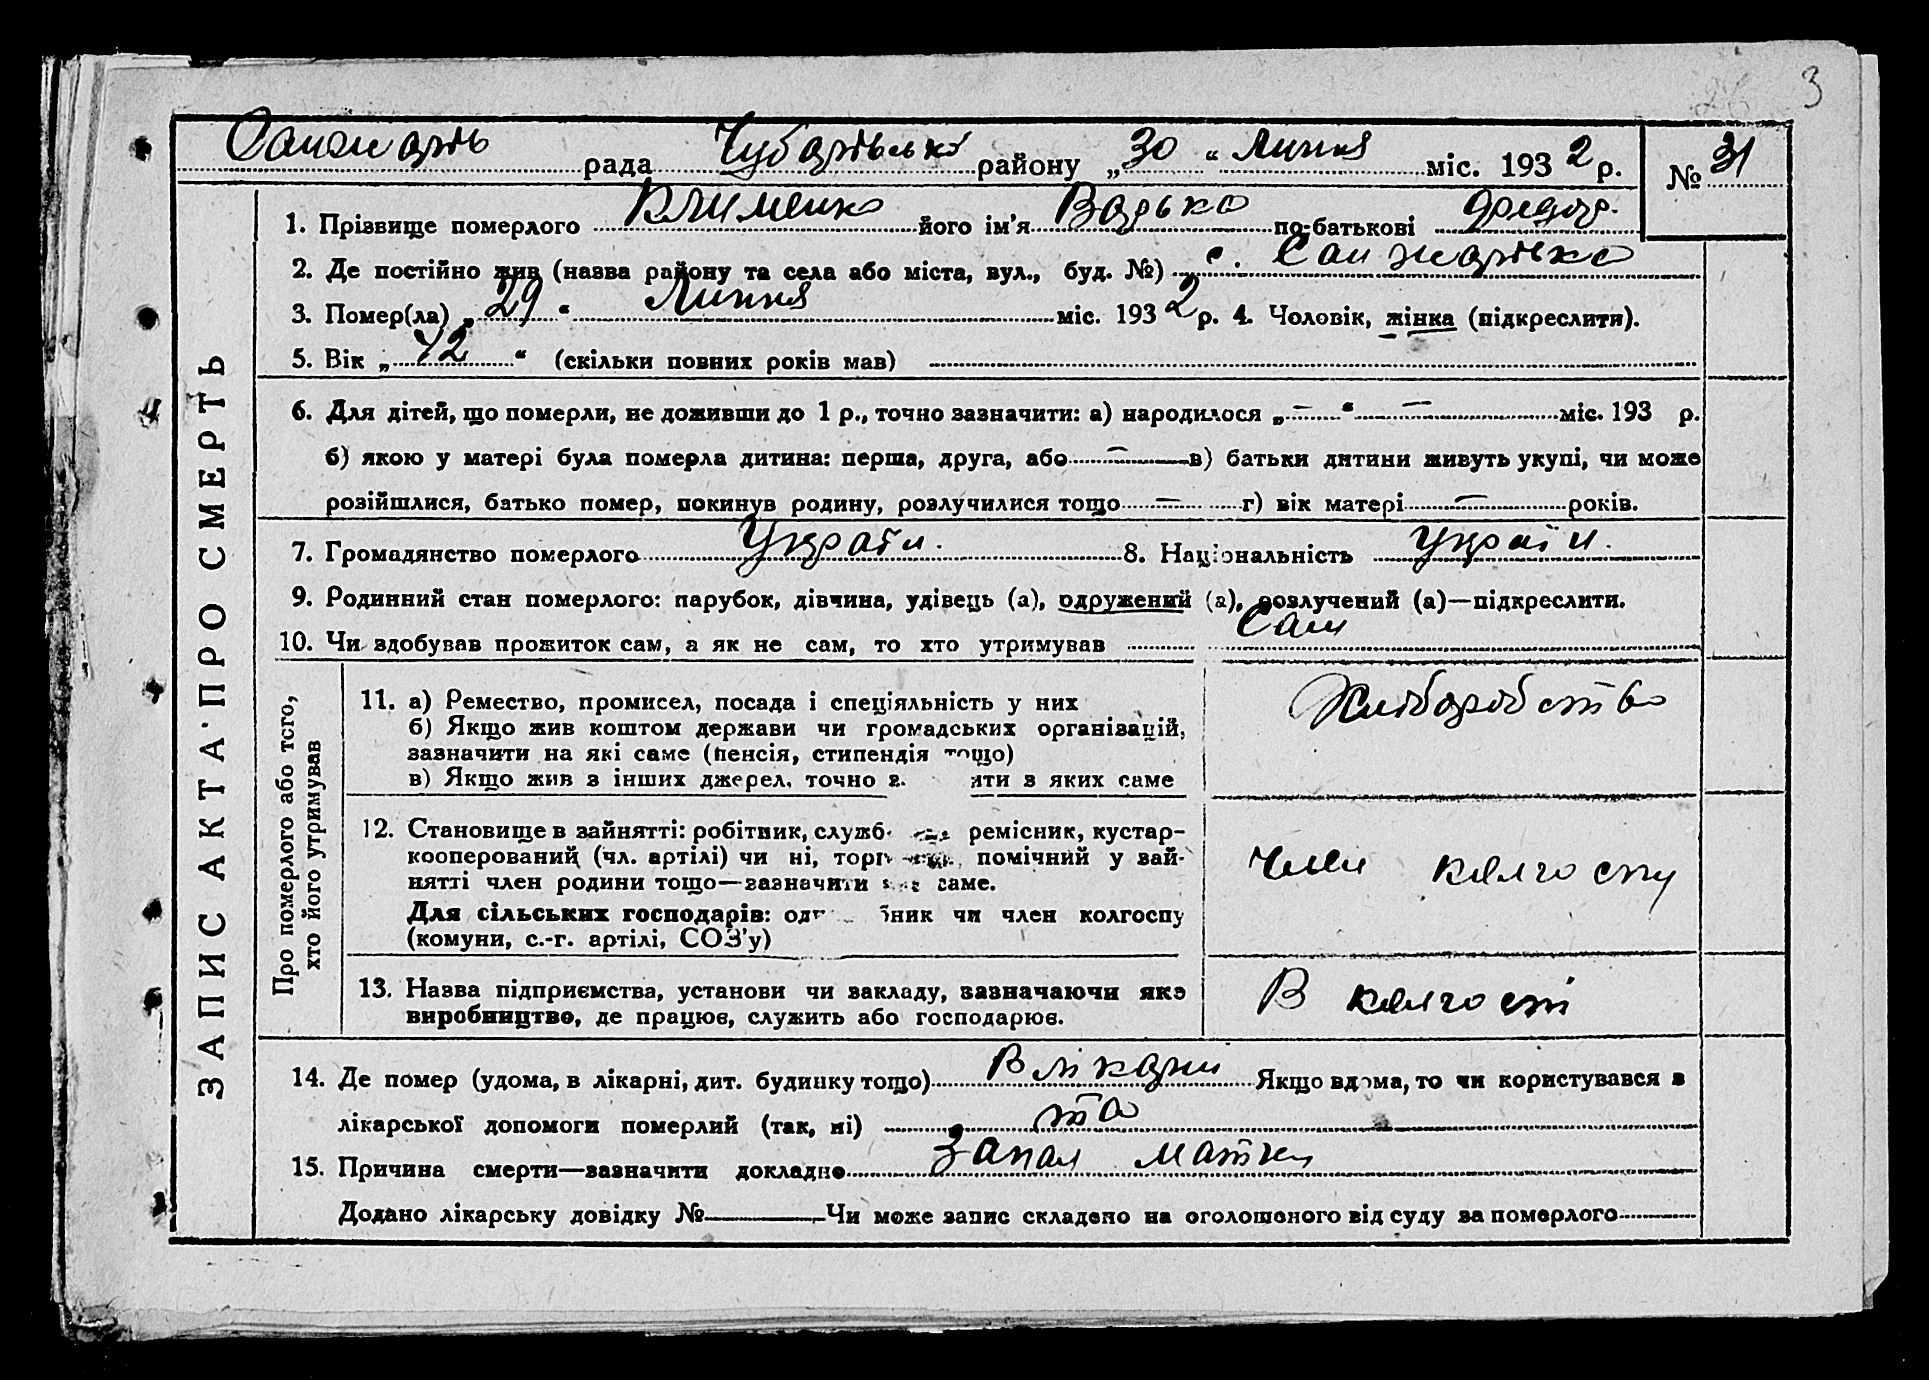 3
Санжарів рада Чубарівського району „30“ Липня міс. 1932 р. № 31
1. Прізвище померлого Клименко його ім’я Варька по-батькові Федор.
2. Де постійно жив (назва району та села або міста, вул., буд. №) с. Санжарівка
3. Помер(ла) „29“ Липня міс. 1932 р. 4. Чоловік, жінка (підкреслити).
5. Вік „42“ (скільки повних років мав)
6. Для дітей, що померли, не доживши до 1 р., точно зазначити: а) народилося „—“ — міс. 193 р.
б) якою у матері була померла дитина: перша, друга, або — в) батьки дитини живуть укупі, чи може
розійшлися, батько помер, покинув родину, розлучилися тощо — г) вік матері — років.
7. Громадянство померлого Украін. 8. Національність Украін.
9. Родинний стан померлого: парубок, дівчина, удівець (а), одружений (а), розлучений (а)—підкреслити.
10. Чи здобував прожиток сам, а як не сам, то хто утримував Сам
ЗАПИС АКТА ПРО СМЕРТЬ
Про померлого або того,
хто його утримував
11. а) Ремество, промисел, посада і спеціяльність у них
б) Якщо жив коштом держави чи громадських організацій,
зазначити на які саме (пенсія, стипендія тощо)
в) Якщо жив з інших джерел, точно з ити з яких саме
Хліборобство
12. Становище в зайнятті: робітник, служб ремісник, кустар-
кооперований (чл. артілі) чи ні, торг помічний у зай-
нятті член родини тощо—зазначити саме.
Для сільських господарів: од бник чи член колгоспу
(комуни, с.-г. артілі, СОЗ’у)
Член колгоспу
13. Назва підприємства, установи чи закладу, зазначаючи яке
виробництво, де працює, служить або господарює.
В колгоспі
14. Де помер (удома, в лікарні, дит. будинку тощо) В лікарні Якщо вдома, то чи користувався з
лікарської допомоги померлий (так, ні) та
15. Причина смерти—зазначити докладно Запал матки
Додано лікарську довідку № Чи може запис складено на оголошеного від суду за померлого